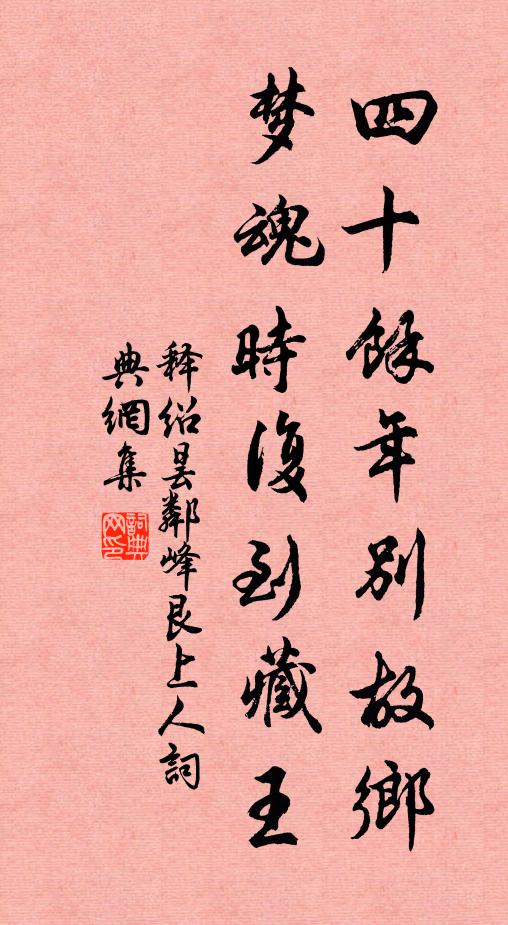 四十餘年別故鄉
梦魂時復到藏王
释绍昙鄰峰艮上人詞
典網集
詞典網印